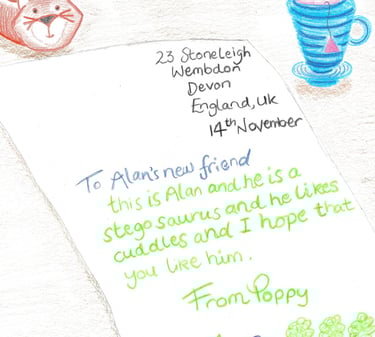 23 Stoneleigh
Wembdon
Devon
England, UK
14th November
To Alan's new friend
this is Alan and he is a
stegosaurus and he likes
cuddles and I hope that
you like him.
From Poppy